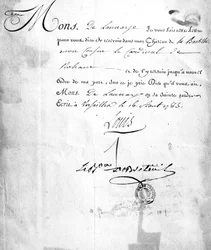 Mons. De Launay Je vous fais cette lettre
pour vous dire de recevoir dans mon Château de la Bastille
mon Cousin le Cardinal de
Rohan
et de l'y retenir jusqu'à nouvel
Ordre de ma part. Sur ce je prie Dieu qu'il vous ait
Mons. De Launay en sa sainte garde.
Ecrit à Versailles le 16 Aout 1785
Louis